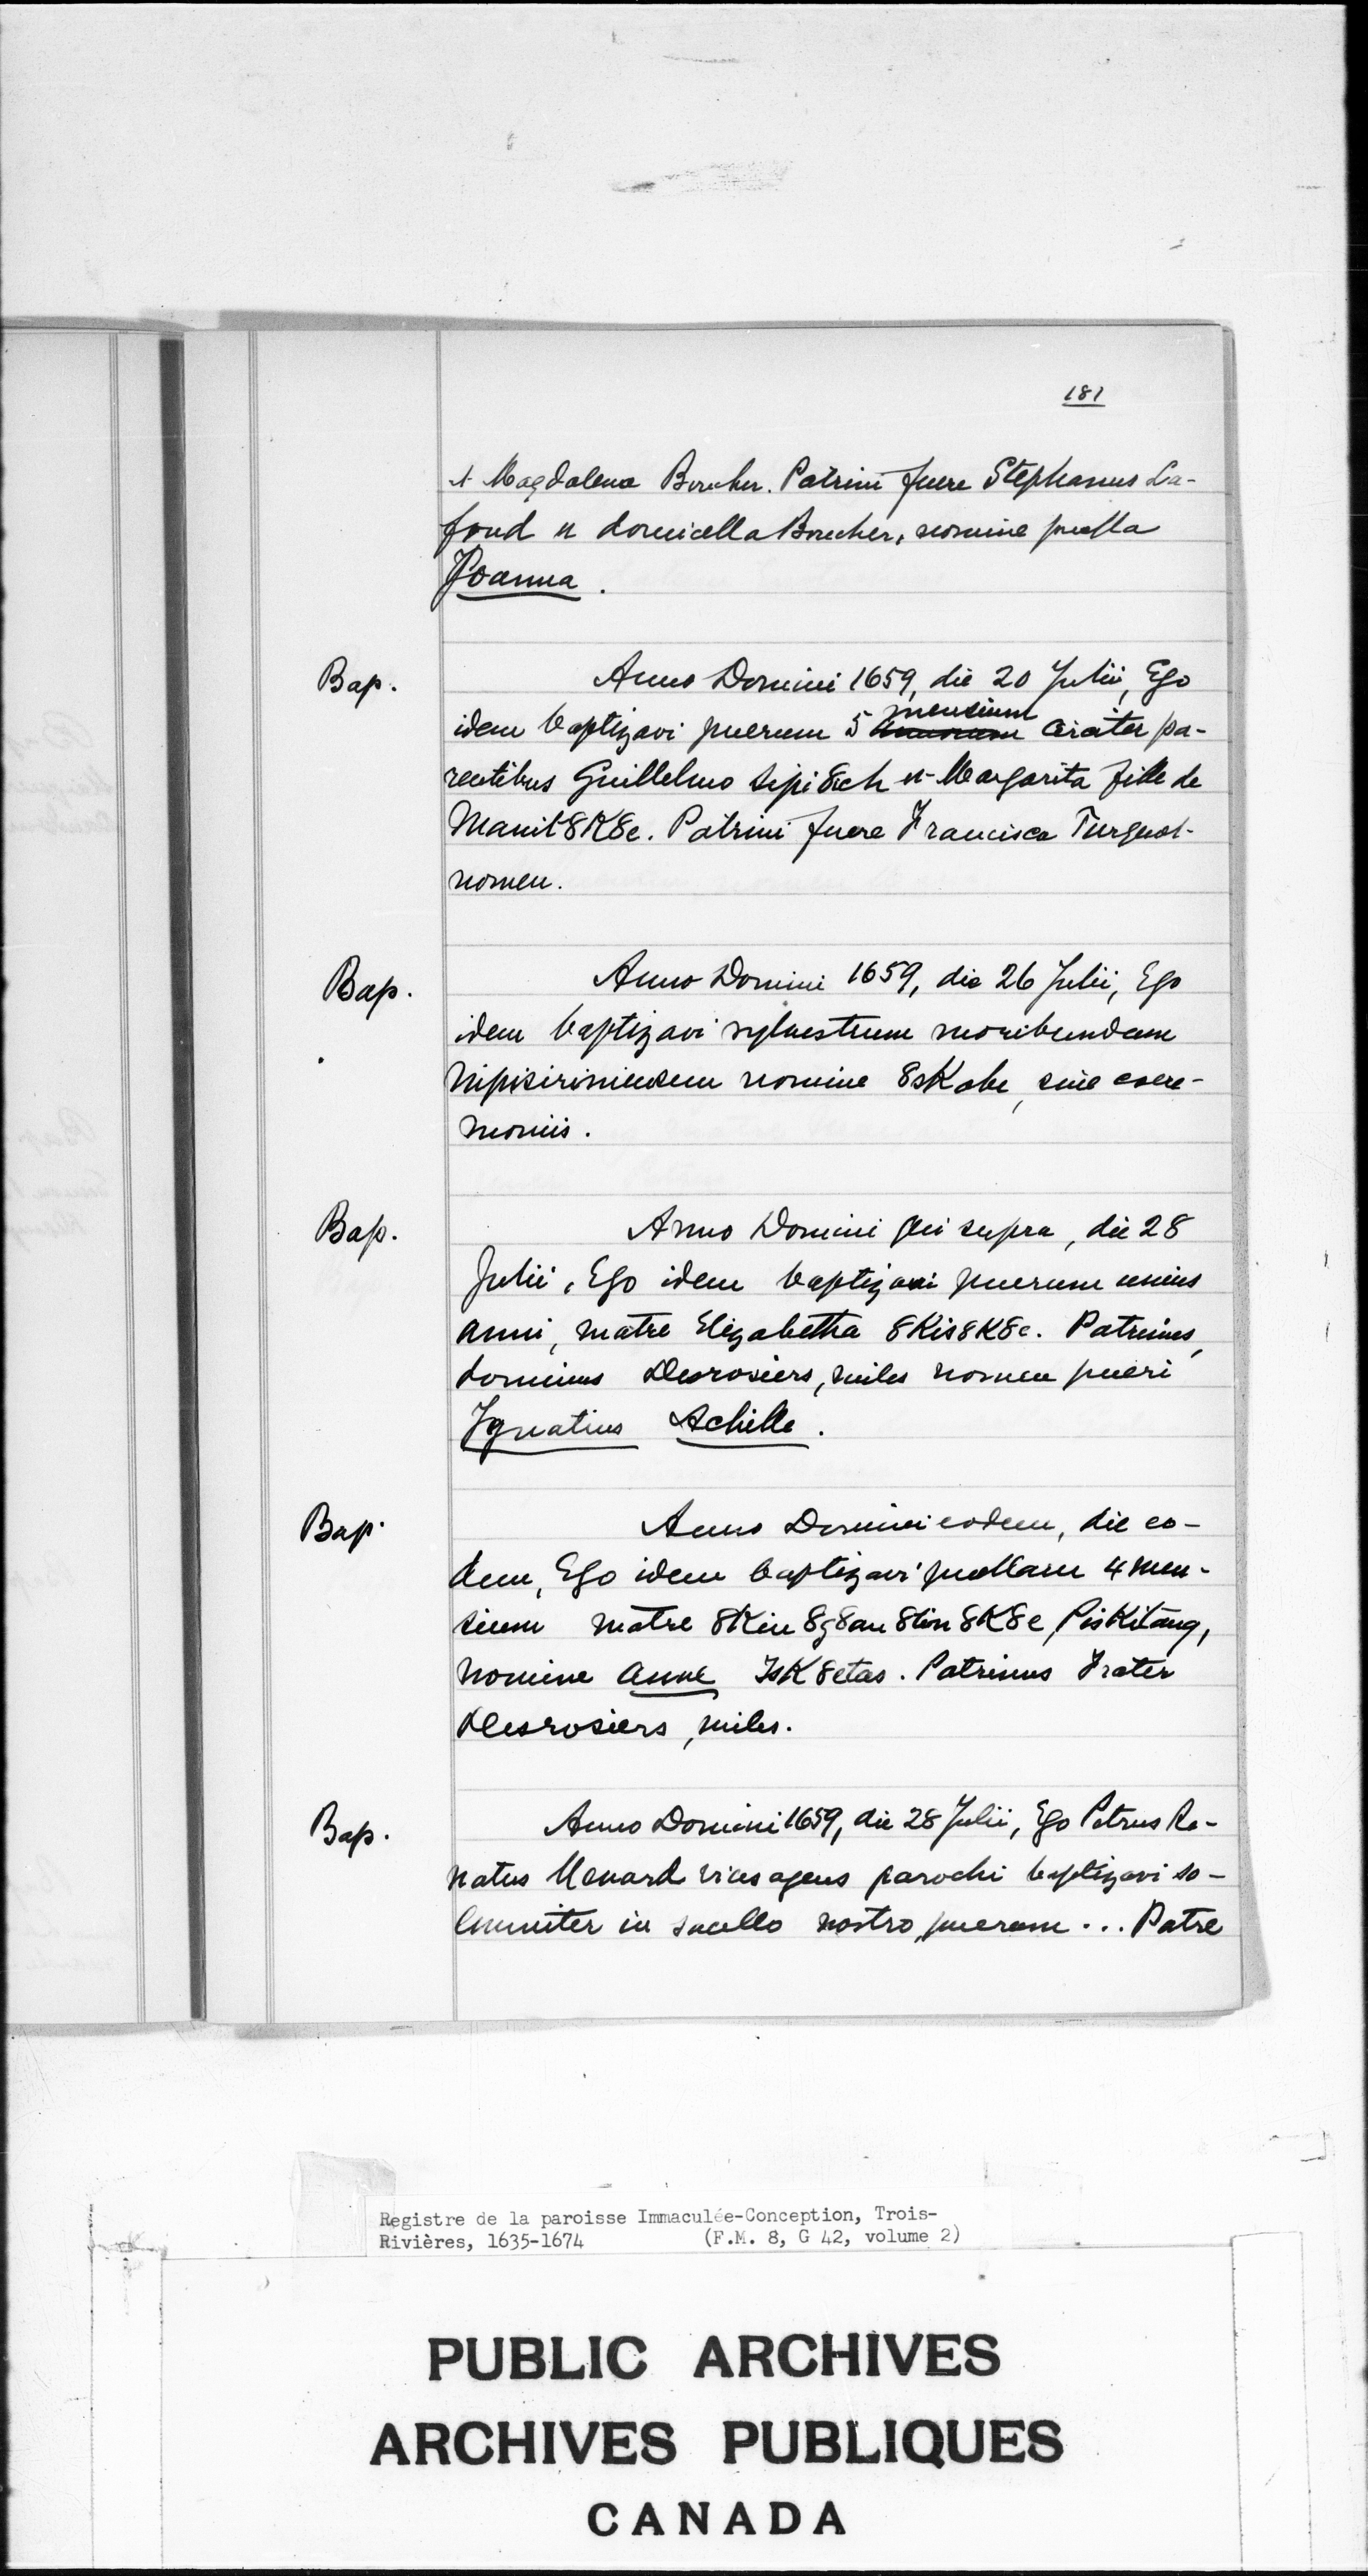 181
et Magdalena Boucher. Patrini fuere Stephanus La-
fond et domicella Boucher, nomine puella
Joanna.
Bap. Anno Domini 1659, die 20 Julii, Ego
idem baptizavi puerum 5 mensium circiter pa-
rentibus Guillelmo Sipi8ch et Margarita fille de
Manit8K8e. Patrini fuere Francisca Turgeot
nomen.
Bap. Anno Domini 1659, die 26 Julii, Ego
idem baptizavi sylvestrem moribundam
Nipisiriniensem nomine 8sKabe, sine cœre-
moniis.
Bap. Anno Domini qui supra, die 28
Julii, Ego idem baptizavi puerum unius
anni, matre Elizabetha 8Kis8K8e. Patrinus,
dominus Desrosiers, miles nomen pueri
Ignatius Achille.
Bap. Anno Domini eodem, die eo-
dem, Ego idem baptizavi puellam 4 men-
sium matre 8Kin8g8an8tin8K8e, PisKitang,
nomine Anne IsK8etas. Patrinus Frater
Desrosiers, miles.
Bap. Anno Domini 1659, die 28 Julii, Ego Petrus Re-
natus Menard vices agens parochi baptizavi so-
lemniter in sacello nostro, puerum ... Patre
Registre de la paroisse Immaculée-Conception, Trois-
Rivières, 1635-1674 (F.M. 8, G 42, volume 2)
PUBLIC ARCHIVES
ARCHIVES PUBLIQUES
CANADA